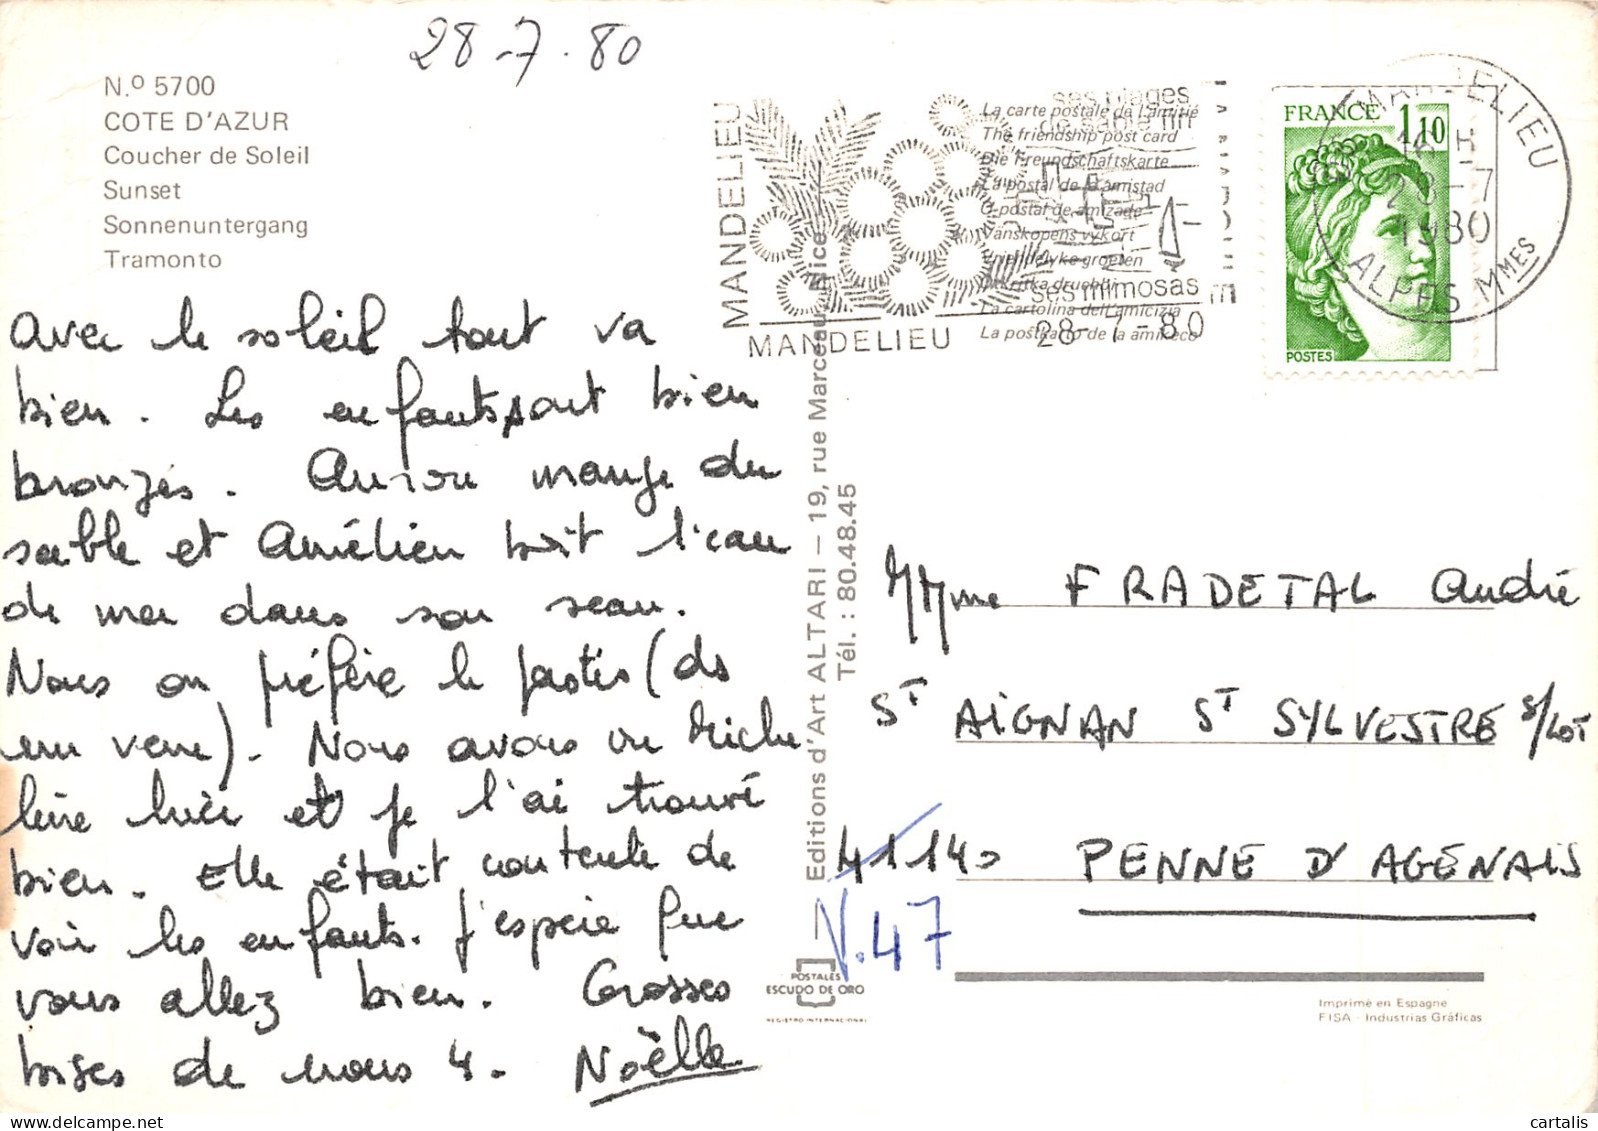 28-7.80
N.º 5700
COTE D'AZUR
Coucher de Soleil
Sunset
Sonnenuntergang
Tramonto
Avec le soleil tout va
bien. Les enfants sont bien
bronzés. mange du
sable et Amélien boit l'eau
de mer dans son seau.
Nous on préfère le pastis (ds
un verre). Nous avons vu Miche
line hier et je l'ai trouvé
bien. Elle était contente de
voir les enfants. J'espère que
vous allez bien. Grosses
bises de nous 4. Noëlle
MANDELIEU
ses plages
de sable fin
ses mimosas
MANDELIEU
28-7-80
La carte postale de l'amitié
The friendship post card
Die Freundschaftskarte
La postal de la amistad
O postal de amizade
Vänskapens vykort
Vriendelyke groeten
La cartolina dell'amicizia
La poŝtkarto de la amikeco
FRANCE 1,10
POSTES
MANDELIEU
16 H
28-7
1980
ALPES MMES
Editions d'Art ALTARI — 19, rue Marceau Nice
Tél. : 80.48.45
MMme FRADETAL André
ST AIGNAN ST SYLVESTRE S/LOT
41140 PENNE D'AGENAIS
V.47
POSTALES
ESCUDO DE ORO
REGISTRO INTERNACIONAL
Imprimé en Espagne
FISA - Industrias Gráficas
cartalis
delcampe.net